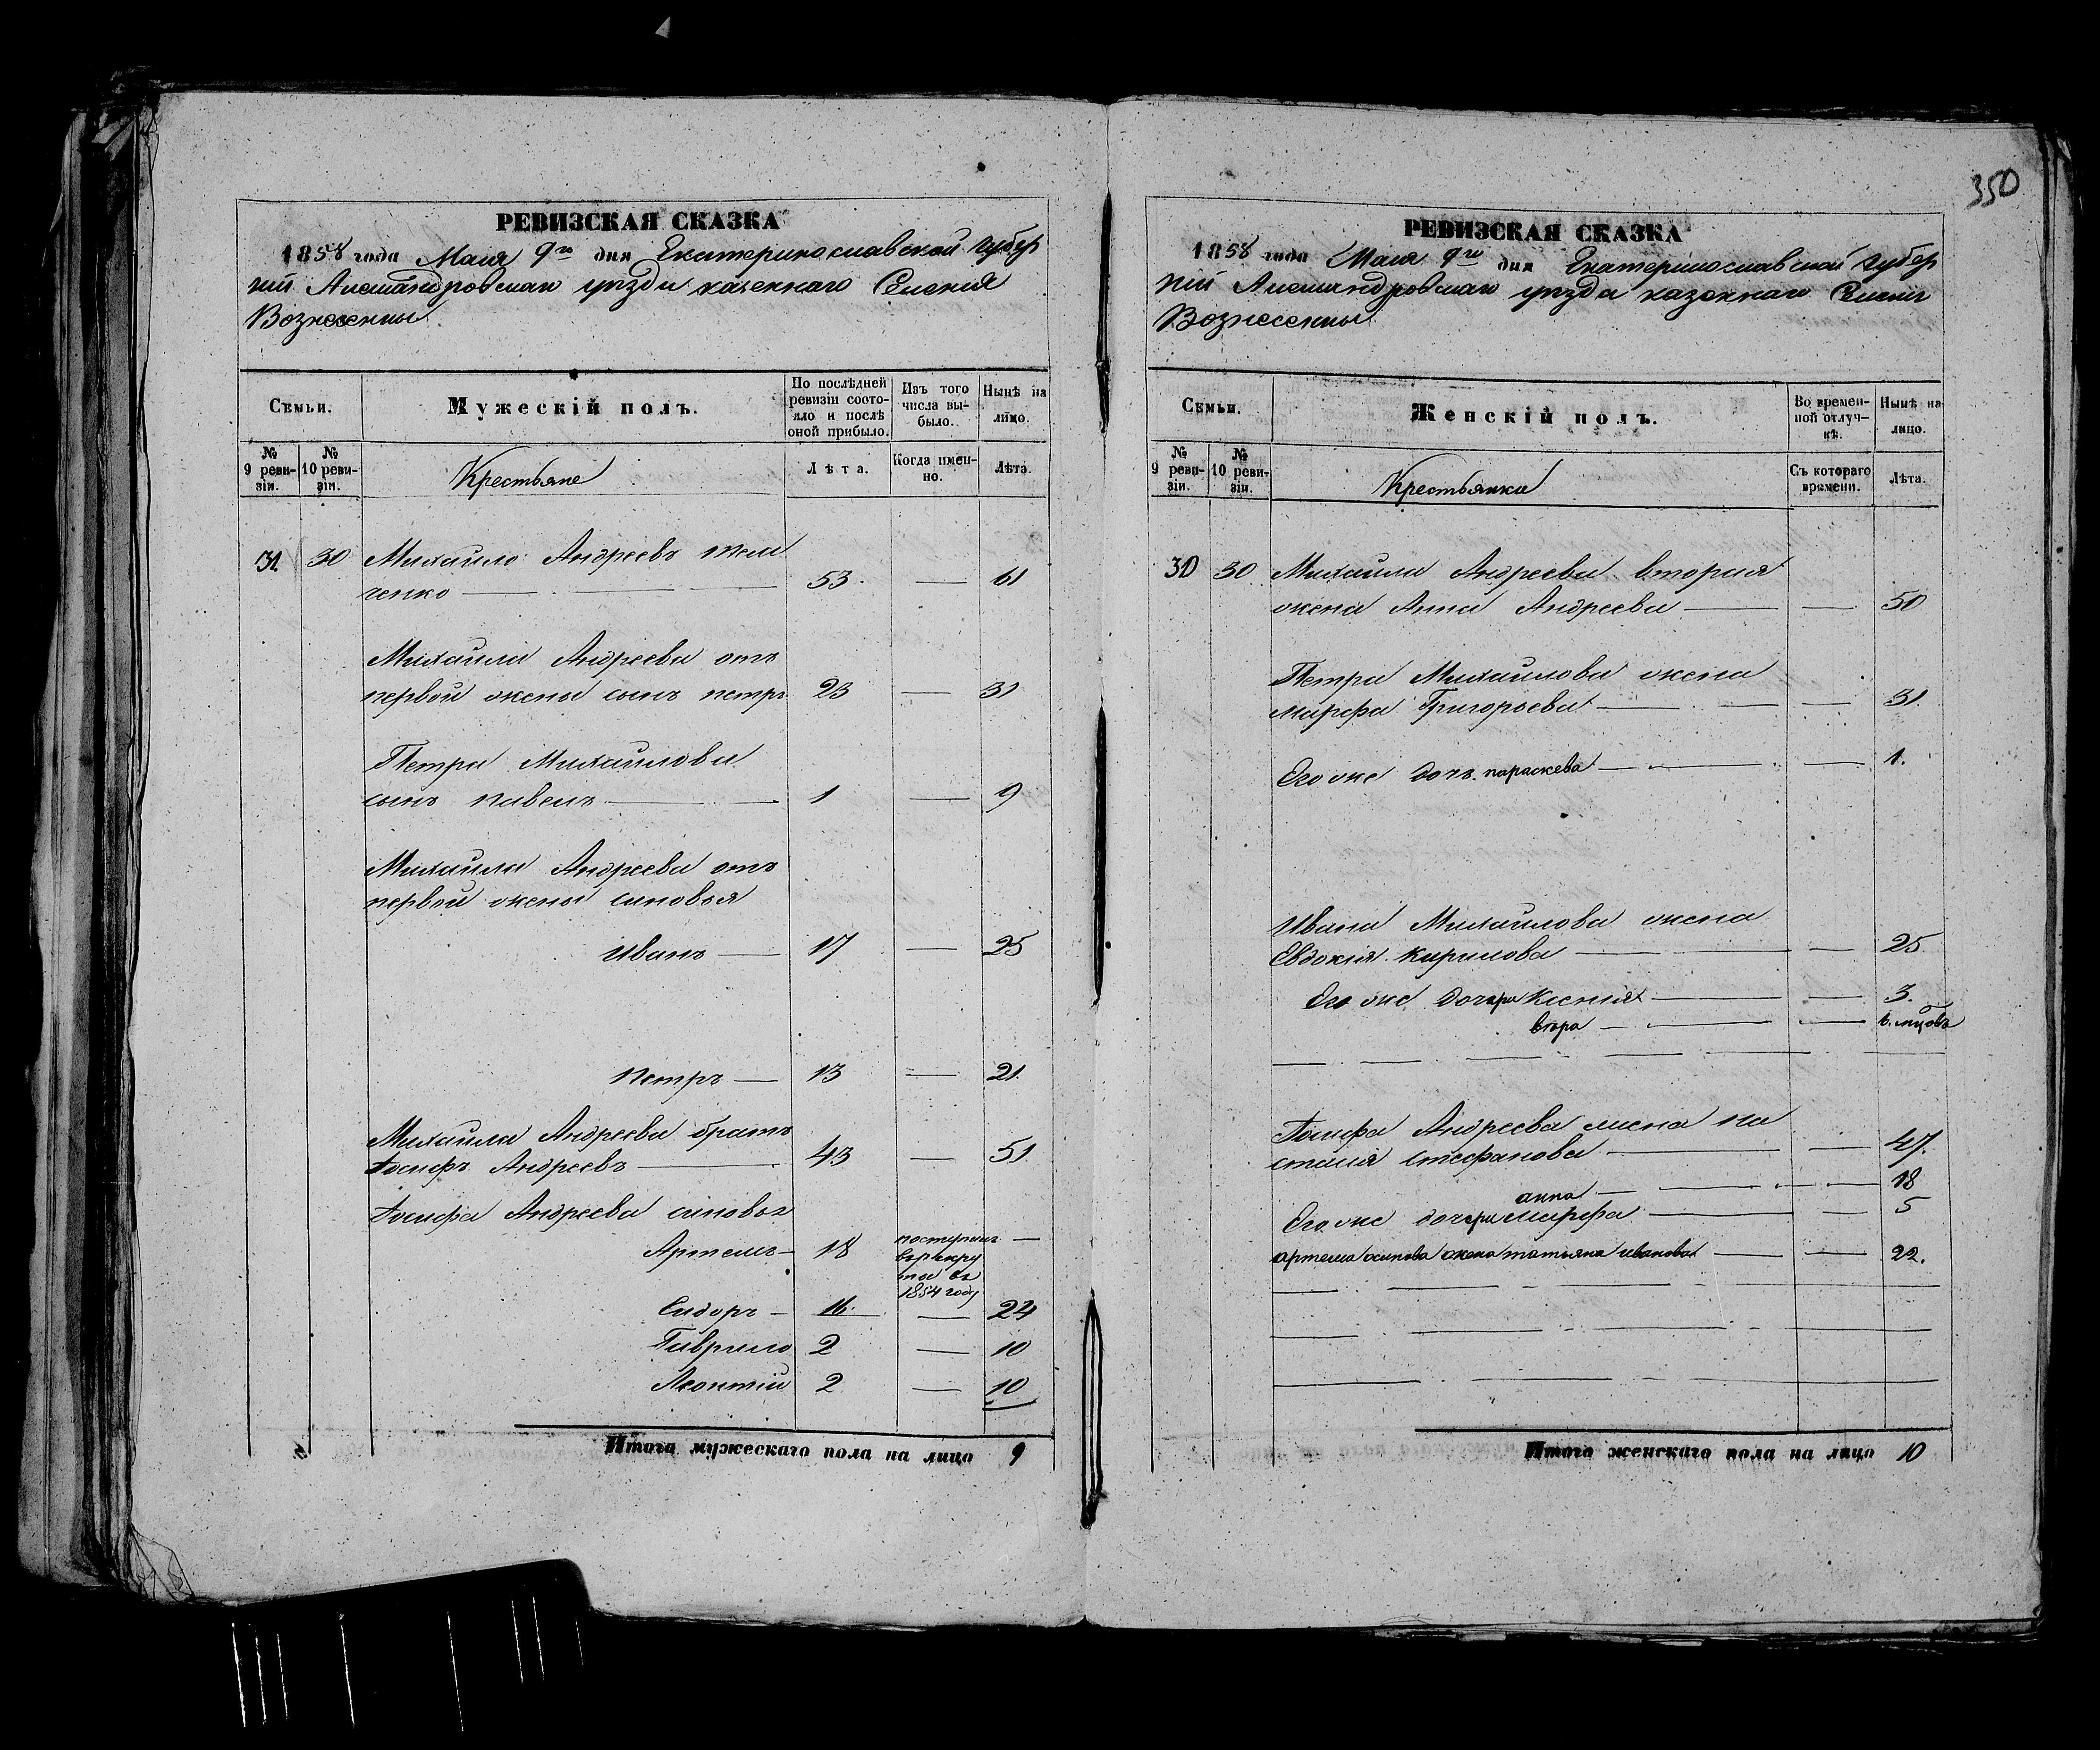 350
РЕВИЗСКАЯ СКАЗКА
1858 года Маія 9го дня Екатеринославской губер
ніи Александровскаго уезда казеннаго Селенія
Вознесенки
Семьи.
Мужескій полъ.
По послѣдней ревизіи состояло и послѣ оной прибыло.
Изъ того числа выбыло.
Нынѣ на лицо.
№ 9 ревизіи.
№ 10 ревизіи.
Крестьяне
Лѣта.
Когда именно.
Лѣта.
31 30 Михайло Андреевъ
ченко — 53. — 61
Михайла Андреева отъ
первой жены сынъ петръ 23 — 31
Петра Михайлова
сынъ павелъ — 1 — 9
Михайла Андреева отъ
первой жены синовья
Иванъ — 17 — 25
петръ — 13 — 21.
Михайла Андреева братъ
Іосифъ Андреевъ — 43 — 51
Іосифа Андреева синовья
Артемъ — 18 поступилъ —
въ рекру
ты въ
1854 году
Сидоръ — 16. — 24
Гаврило 2 — 10
Леонтій 2 — 10
Итого мужескаго пола на лицо 9
РЕВИЗСКАЯ СКАЗКА
1858 года Маія 9го дня Екатеринославской губер
ніи Александровскаго уезда казеннаго Селенія
Вознесенки
Семьи.
Женскій полъ.
Во временной отлучкѣ.
Нынѣ на лицо.
№ 9 ревизіи.
№ 10 ревизіи.
Крестьянки
Съ котораго времени.
Лѣта.
30 30 Михайла Андреева вторая
жена Анна Андреева — — 50
Петра Михайлова жена
марфа Григорьева — — 31.
Его же дочь параскева — — 1.
Ивана Михайлова жена
Евдокія Кирилова — — 25
Его же дочери Ксенія — — 3.
вѣра — — 6. мцовъ
Іосифа Андреева жена на
сталія стефанова — — 47.
анна — — 18
Его же дочери марфа — — 5
артема осипова жена татьяна иванова — — 22.
Итого женскаго пола на лицо 10